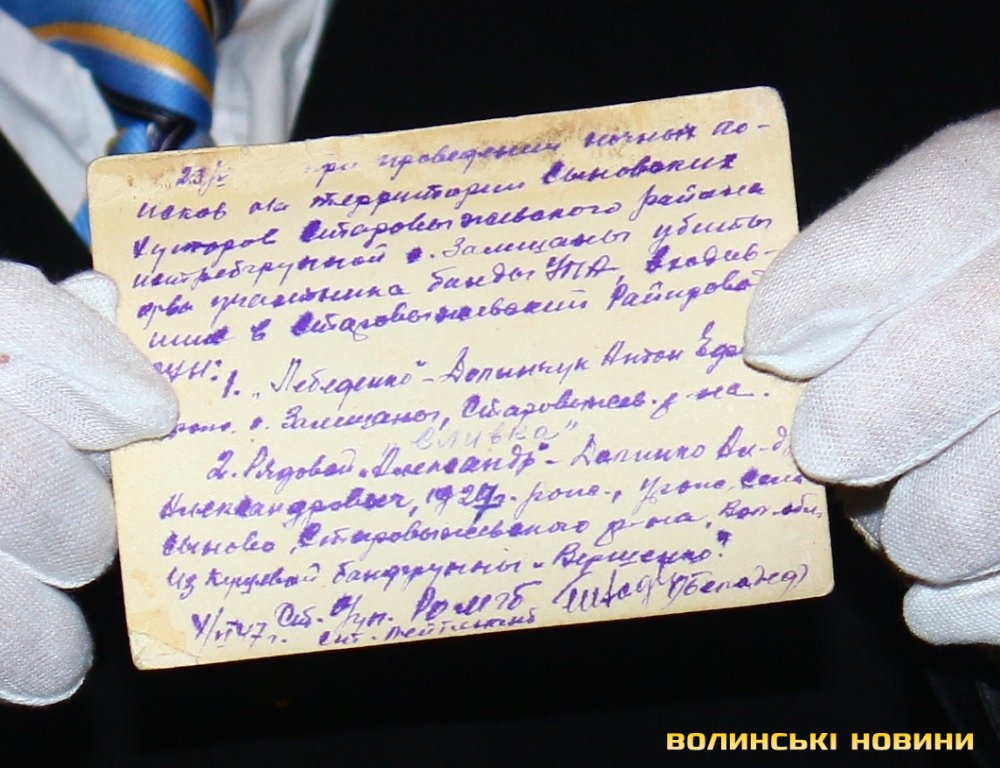 при проведении ночных по-
исков на территории Сыновских
хуторов Старовыжевского района
истребгруппой с. Замщаны убиты
два участника банды УПА, входив-
ших в Старовыжевский Райпровод
ОУН:
1. "Лебеденко" - Долинчук Антон
с. Замщаны, Старовыжев. р-на.
"Сливка"
2. Рядовой "Александр" - Долинко Ал-др
Александрович, 1927 г. рожд., урож. села
Сыново, Старовыжевского р-на, Вол. обл.
из кущевой бандгруппы "Вершенко".
47 г. Ст. о/уп. РОМГБ
лейтенант
ВОЛИНСЬКІ НОВИНИ